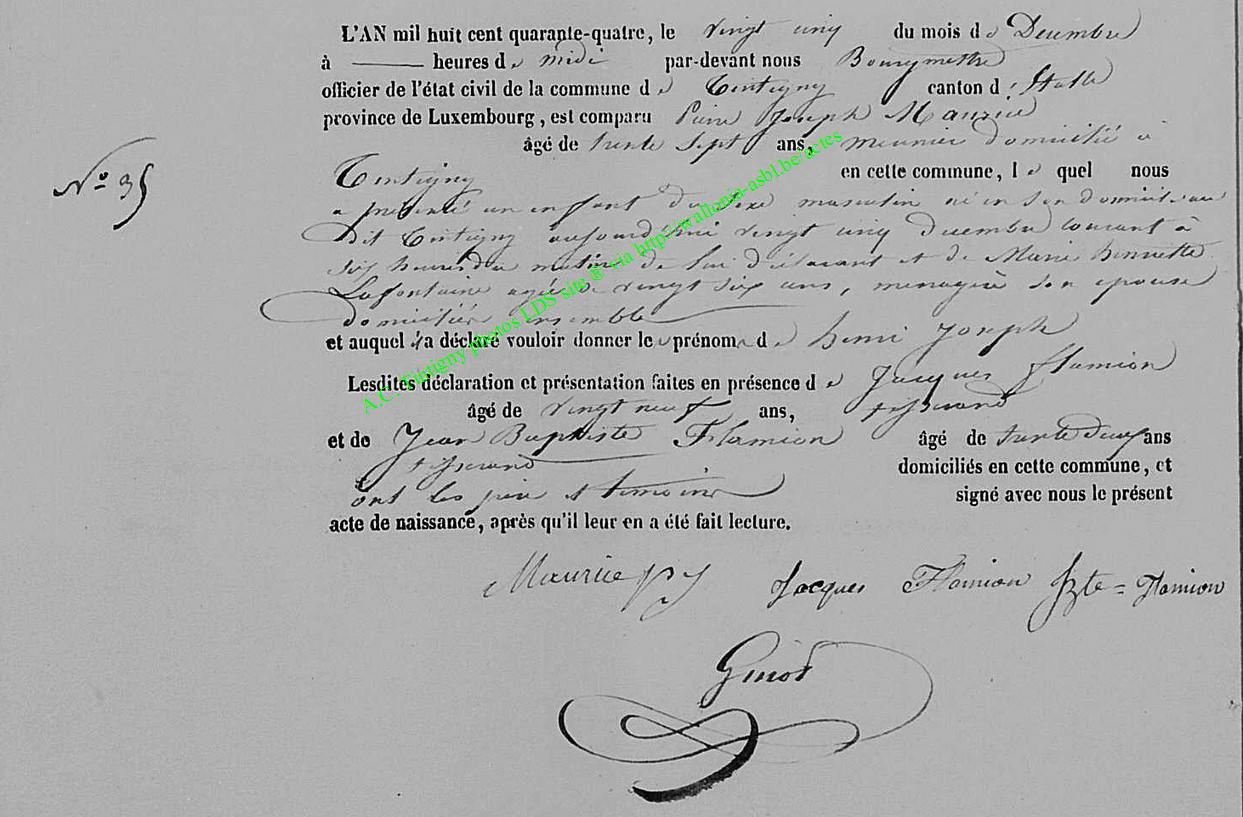 L'AN mil huit cent quarante-quatre, le vingt cinq du mois de Decembre
à ——— heures de midi par-devant nous Bourgmestre
officier de l'état civil de la commune de Tintigny canton d'Etalle
province de Luxembourg, est comparu Pierre Joseph Maurice
âgé de trente sept ans, meunier domicilié à
Tintigny en cette commune, le quel nous
a présenté un enfant du sexe masculin né en son domicile au
Dit Tintigny aujourd'hui vingt cinq decembre courant à
six heures du matin de lui déclarant et de Marie henriette
Lafontaine agée de vingt six ans, menagère son epouse
domiciliés ensemble
et auquel il a déclaré vouloir donner le prénom de henri Joseph
Lesdites déclaration et présentation faites en présence de Jacques Flamion
âgé de vingt neuf ans, tisserand
et de Jean Baptiste Flamion âgé de trente deux ans
tisserand domiciliés en cette commune, et
ont les père et temoins signé avec nous le présent
acte de naissance, après qu'il leur en a été fait lecture.
N° 35
Maurice pj Jacques Flamion JBte = Flamion
Ginot
A.C. Tintigny photos LDS site ® via http://wallonia-asbl.be/actes